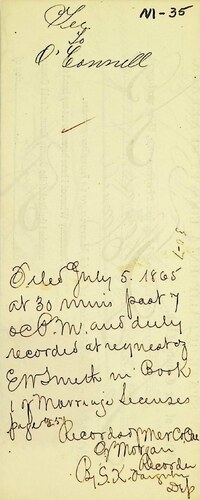 M-35
Fee
to
O'Connell
307
Filed July 5. 1865
at 30 mins past 7
oc P.M. and duly
recorded at request of
E W Smith in Book
1 of Marriage Licenses
page 357
Recorder of Mer. Co. Cal
Recorder
By S. K.
Dep